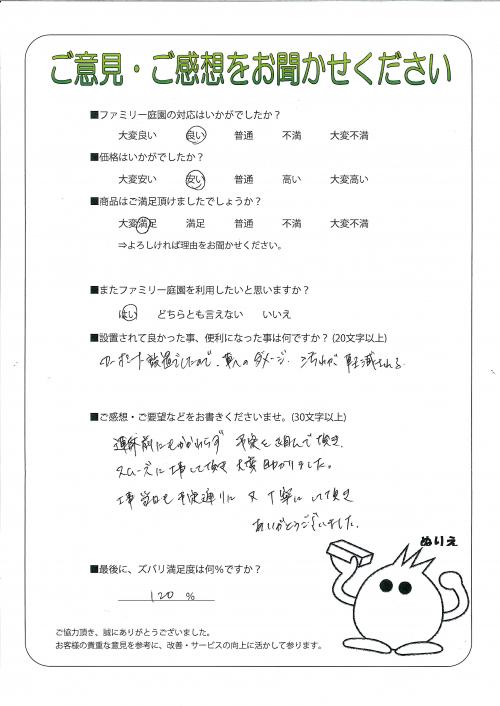 ご意見・ご感想をお聞かせください
■ファミリー庭園の対応はいかがでしたか？
大変良い 良い 普通 不満 大変不満
■価格はいかがでしたか？
大変安い 安い 普通 高い 大変高い
■商品はご満足頂けましたでしょうか？
大変満足 満足 普通 不満 大変不満
⇒よろしければ理由をお聞かせください。
■またファミリー庭園を利用したいと思いますか？
はい どちらとも言えない いいえ
■設置されて良かった事、便利になった事は何ですか？(20文字以上)
カーポート設置でしたので、車へのダメージ、汚れが、軽減される
■ご感想・ご要望などをお書きくださいませ。(30文字以上)
連休前にもかかわらず 予定を組んで頂き
スムーズに工事して頂き 大変助かりました。
工事当日も予定通りに 又 丁寧にして頂き
ありがとうございました。
ぬりえ
■最後に、ズバリ満足度は何％ですか？
120 ％
ご協力頂き、誠にありがとうございました。
お客様の貴重な意見を参考に、改善・サービスの向上に活かして参ります。